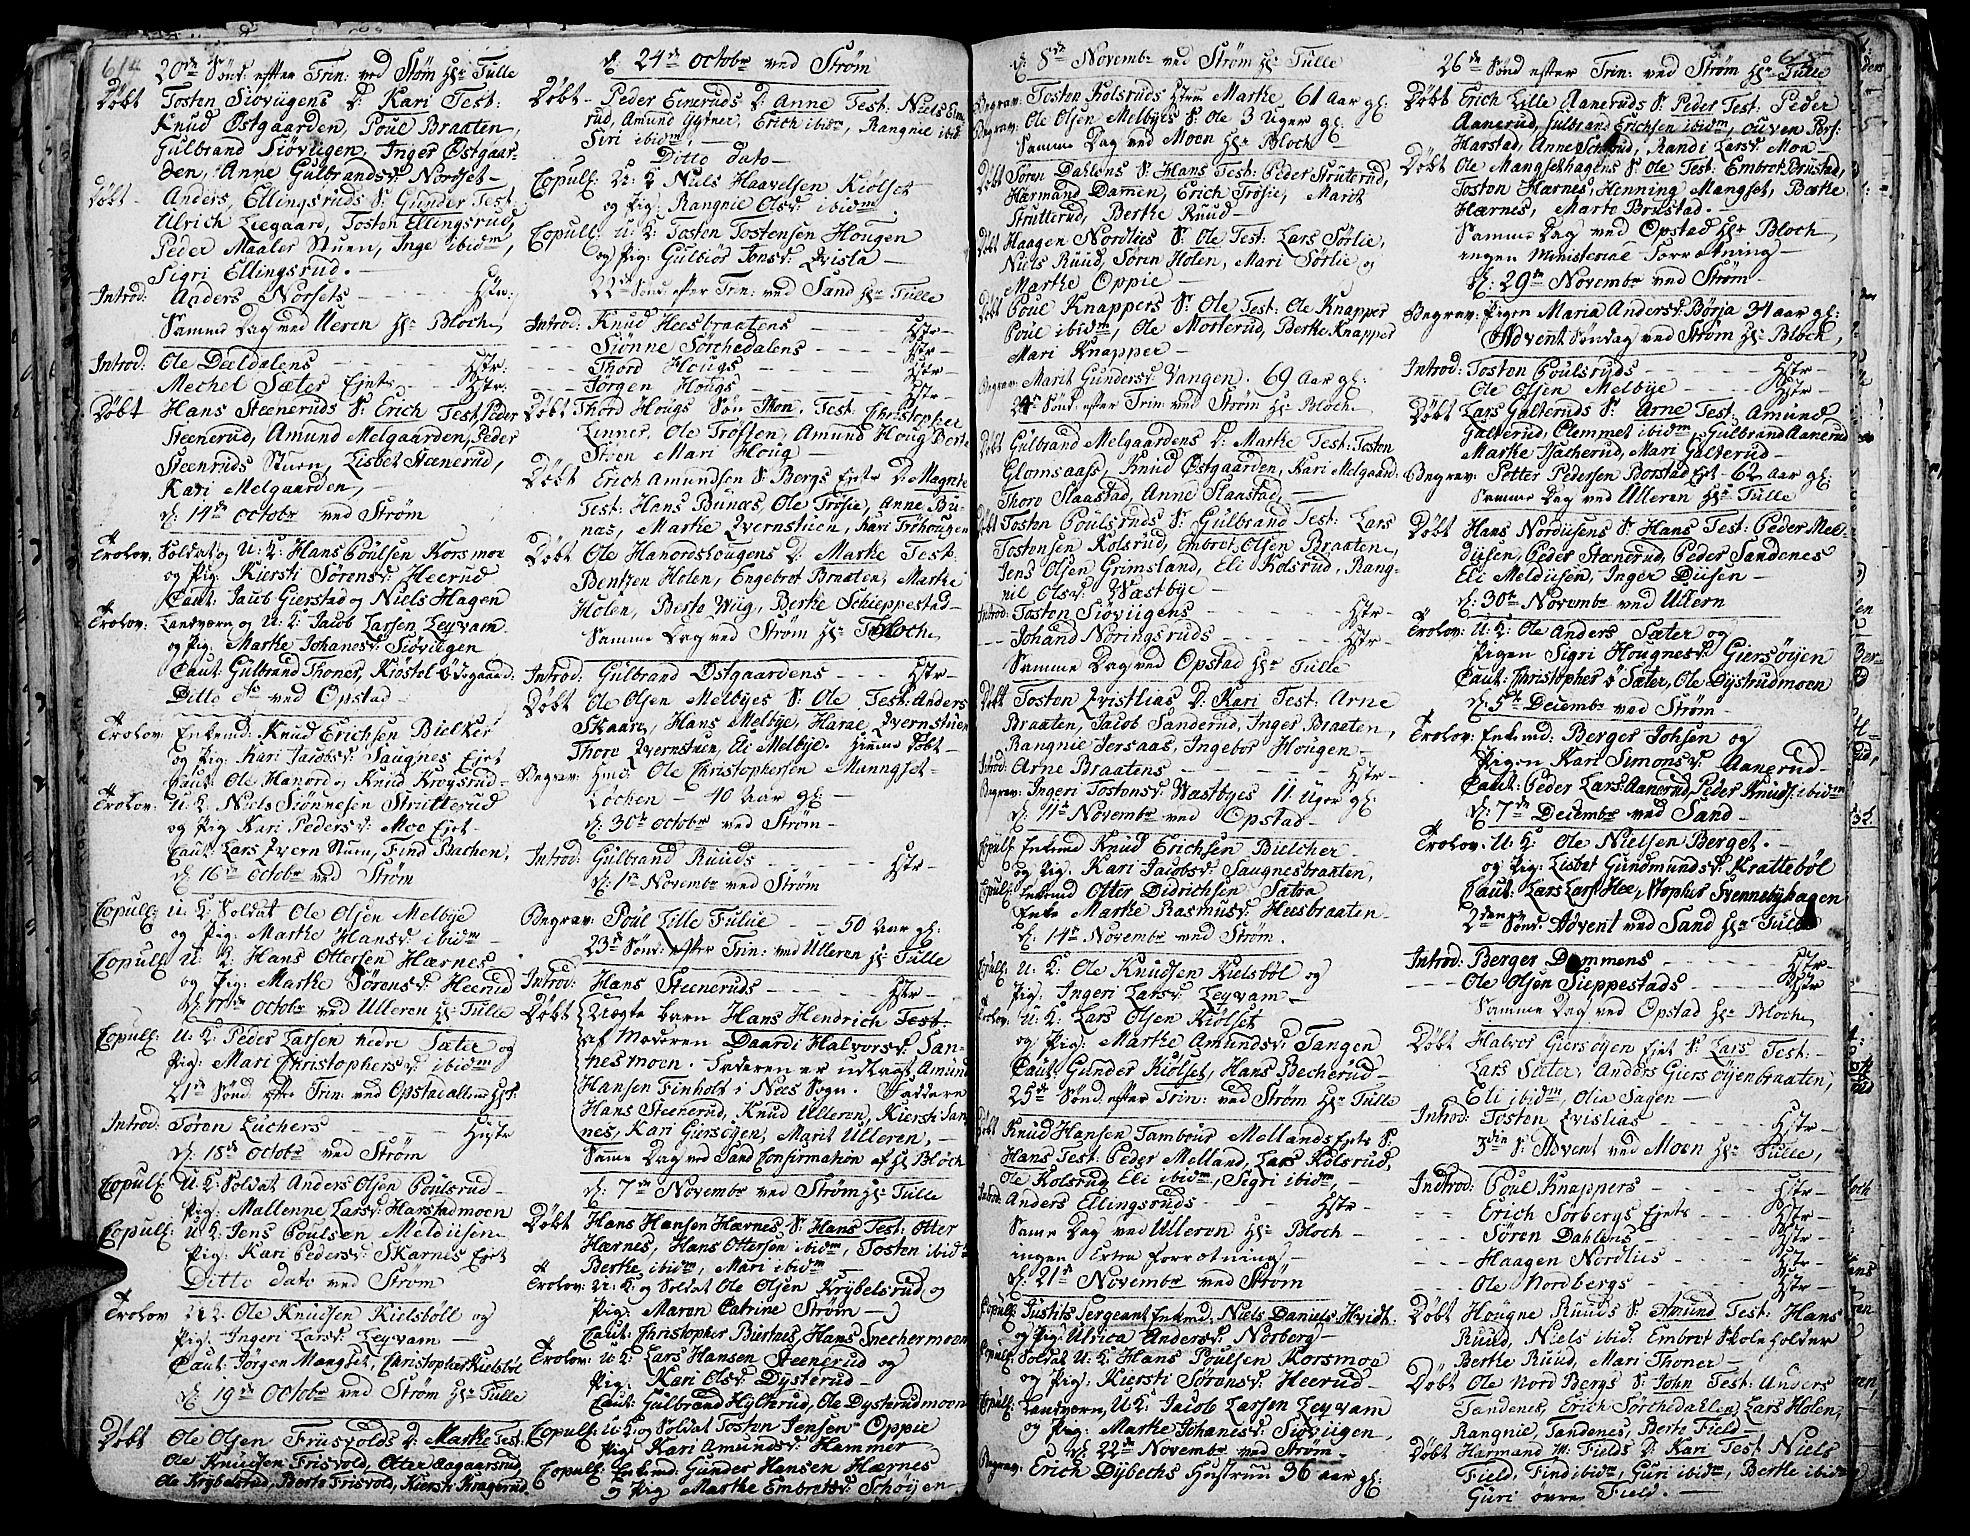 614
20de Sönd: efter Trin: ved Ström Hr Tulle
Döbt Tosten Siöviigens D: Kari Test:
Knud Østgaarden, Poul Braaten,
Gulbrand Siöviigen, Inger Østgaar-
den, Anne Gulbrandsd: Nordset-
Döbt - Anders Ellingsruds S: Gunder Test:
Alrich Liegaard, Tosten Ellingsrud,
Peder Maaler Stuen, Inge ibidm,
Sigri Ellingsrud. -
Introd: Anders Norsets - - Hstr:
Samme Dag ved Ulleren Hr Bloch,
Introd: Ole Dældalens - - - Hstr -
Mechel Sæter Ejets - - Hstr:
Döbt Hans Steeneruds S: Erich Test: Peder
Steenerud, Amund Melgaarden, Peder
Steenruds Stuen, Lisbet Steenerud,
Kari Melgaarden, -
d: 14de Octobr ved Ström
Trolov: Soldat og U: K: Hans Poulsen Korsmoe
og Pig: Kiersti Sörensd: Heerud
Caut: Jacob Gierstad og Niels Hagen
Trolov: Landværn og U: K: Jacob Larsen Leyvam
og Pig: Marthe Johanesd: Siöviigen
Caut: Gulbrand Thoner, Kristel Ödegaard:
Ditto do ved Opstad
Trolov: Enkemd: Knud Erichsen Bielker
og Pig: Kari Jacobsd: Saugnes Ejet
Caut: Ole Hanord og Knud Krogsrud -
Trolov: U: K: Niels Siönnesen Strutterud
og Pig Kari Pedersd: Moe Ejet -
Caut: Lars Qvern Stuen, Find Bachen,
d: 16de Octobr ved Ström
Copull: U: K: Soldat Ole Olsen Melbye
og Pig: Marthe Hansd: ibidm -
Copull: U: K: Hans Ottersen Hærnes
og Pig: Marthe Sörensd: Heerud
d: 17de Octobr ved Ulleren Hr Tulle
Copull: U: K: Peder Larsen nedre Sæter og
Pig: Mari Christophersd: ibidm
21de Sönd: efter Trin: ved Opstad
Introd: Sören Luchers - - Hustr
d: 18de Octobr ved Ström
Copull: U: K: Soldat Anders Olsen Poulsrud -
Pig: Mallenne Larsd: Harstadmoen
Copull: U: K: Jens Poulsen Meldiisen -
Pig: Kari Pedersd: Skarnes Ejet
Ditto dato ved Ström
Trolov U: K: Ole Knudsen Kielsböll og
Pig: Ingeri Larsd: Leyvam -
Caut: Jörgen Mangset, Christopher Kielsböl
d: 19de Octobr ved Ström Hr Tulle
Döbt Ole Olsen Friisvolds D: Marthe Test:
Ole Knudsen Frisvold, Otter Aagaarsrud,
Ole Krybelsrud, Berte Frisvold, Kiersti Kragerud.
d: 24de Octobr ved Ström
Döbt - Peder Eineruds D: Anne Test: Niels Eine-
rud, Amund Ygner, Erich ibidm, Rangnie ibid
Siri ibidm, -
Ditto dato -
Copull: U: K Niels Haavelsen Kiölset
og Pig: Rangnie Olsd: ibidm
Copull: U: K: Tosten Tostensen Hougen
og Pig: Gulbiör Jonsd: Qvisla -
22de Sönd: efter Trin: ved Sand Hr Tulle
Introd: Knud Heesbraatens - - - Hstr -
Siönne Sörchedalens - - - Hstr -
Thord Hougs - - - Hstr -
Jörgen Hougs - - - Hstr -
Döbt Thord Hougs Sön Thon. Test. Christopher
Linner, Ole Trofsen, Amund Houg, Berte
Stren Mari Houg -
Döbt Erich Amundsen S: Bergs Ejets D: Magnete
Test: Hans Bunæs, Ole Trosie, Anne Bu-
næs, Marthe Qvernstuen, Kari Tröhougen
Döbt Ole Hanordshougens D: Marthe Test:
Bentzen Holen, Engebret Braaten, Marthe
Holen, Berte Wiig, Berthe Schieppestad -
Samme Dag ved Ström Hr Bloch,
Introd: Gulbrand Østgaardens - - - Hstr -
Döbt Ole Olsen Melbyes S: Ole Test: Anders
Skaare, Hans Melbye, Harae Qvernstuen
Thore Qvernstuen, Eli Melbye. hiemmedöbt -
Begrav: Ole Christophersen Manngset -
Löchen - 40 Aar gl: -
d: 30te Octobr ved Ström -
Introd: Gulbrand Ruuds - - - Hstr -
d: 1te Novembr ved Ström
Begrav: Poul Lille Fulue - - 50 Aar gl:
23de Sönd: efter Trin: ved Ulleren Hr Tulle
Introd: Hans Steeneruds - - - Hstr -
Döbt Uægte barn Hans Hendrich Test
af Moderen Daardi Halvorsd: San-
nesmoen. Faderen er udlagt Amund
Hansen Finhold i Næes Sogn. Faddere
Hans Steenerud, Knud Ulleren, Kiersti San-
nes, Kari Giersöyen, Marit Ulleren, -
Samme Dag ved Sand Confirmation af Hr Bloch
d: 7de Novembr ved Ström Hr Tulle
Döbt Hans Hansen Hærnes S: Hans Test: Otter
Hærnes, Hans Ottersen ibidm, Tosten ibidm
Berthe ibidm, Mari ibidm -
Trolov: U: K: og Soldat Ole Olsen Krybelsrud og
Pig: Maran Catrine Ström -
Caut: Christopher Buertnes, Hans Snechermoen
Trolov: U: K: Lars Hansen Steenerud og
Pig: Kari Olsd: Dysterud -
Caut: Gulbrand Hylterud, Ole Dysterudmoen
Copull: U: K: og Soldat Tosten Jensen Oppie
Pig: Kari Amundsd: Hammer
Copull: Enkemd: Gunder Hansen Hærnes
og Pig Marthe Embretsd: Schöyen -
d: 8de Novembr ved Ström Hr Tulle
Begrav: Tosten Kolsruds Hstru Marthe 61 Aar gl:
Begrav: Ole Olsen Melbyes S: Ole 3 Uger gl:
Samme Dag ved Moen Hr Bloch -
Döbt Sören Dahlens S: Hans Test: Peder Struterud,
Harmand Damen, Erich Trosie, Marit
Strutterud, Berthe Knud -
Döbt Haagen Nordlies S: Ole Test: Lars Sörlie,
Niels Ruud, Sören Holen, Mari Sörlie og
Marthe Oppie -
Döbt Poul Knappers S: Ole Test: Ole Knapper
Poul ibidm, Ole Morterud, Berthe Knapper
Mari Knapper -
Begrav: Marit Gundersd: Vangen. 69 Aar gl:
24de Sönd: efter Trin: ved Ström Hr Bloch -
Döbt Gulbrand Melgaardens D: Marthe Test: Tosten
Glomsaass, Knud Østgaarden, Kari Melgaard:
Thoro Slaastad, Anne Slaastad, -
Döbt Tosten Poulsruds S: Gulbrand Test: Lars
Tostensen Kolsrud, Embret Olsen Braaten,
Jens Olsen Grimsland, Eli Kolsrud, Rang-
nil Olsd: Wæstbye -
Introd: Tosten Siöviigens - - - Hstr -
- Johand Noringsruds - - - Hstr -
Samme Dag ved Opstad Hr Tulle
Döbt Tosten Qvistlias D: Kari Test: Arne
Braaten, Jacob Sanderud, Inger Braaten,
Rangnie Jersaas, Ingebor Hougen -
Introd: Arne Braatens - - - Hstr -
Begrav: Ingeri Tostensd: Wæstbyes 11 Uger gl:
d: 11te Novembr ved Opstad -
Copull: Enkemd Knud Erichsen Bielcher
og Pig: Kari Jacobsd: Saugnesbraaten,
Copull: Enkemd Otter Didrichsen Sætra
Enke Marthe Rasmusd: Heesbraaten -
d: 14de Novembr ved Ström.
Copull: U: K: Ole Knudsen Kielsböl og
Pig: Ingeri Larsd: Leyvam -
Trolov: U: K: Lars Olsen Kiölset
og Pig: Marthe Amundsd: Tangen
Caut: Gunder Kiölset, Hans Becherud -
25de Sönd: efter Trin: ved Ström Hr Tulle
Döbt Knud Hansen Tambour Mellands Ejets S:
Hans Test: Peder Melland, Lars Kolsrud,
Ole Kolsrud Eli ibidm, Sigri ibidm, -
Introd: Anders Ellingsruds - - Hstr -
Samme Dag ved Ulleren Hr Bloch -
ingen Extra Forretning -
d: 21de Novembr ved Ström
Copull: Justits Sergeant Enkemd, Niels Daniels Hvidt
og Pig: Ulrica Andersd: Norberg -
Copull: Soldat U: K: Hans Poulsen Korsmoe
og Pig: Kiersti Sörensd: Heerud -
Copull: Landværn, U: K: Jacob Larsen Leyvam
og Pig: Marthe Johanesd: Siöviigen,
d: 22de Novembr ved Ström -
Begrav: Erich Dybechs Hustruu 36 aar gl:
615
26de Sönd efter Trin: ved Ström Hr Tulle
Döbt Erich Lille Aaneruds S: Peder Test: Peder
Aanerud, Gulbrand Erichsen ibidm, Ouven Pers:
Harstad, Anne Scherud, Randi Larsd: Moe -
Döbt Ole Mangsethagens S: Ole Test: Embret Brustad,
Tosten Hærnes, Henning Mangset, Berthe
Hærnes, Marte Brustad. -
Samme Dag ved Opstad Hr Bloch,
ingen Ministerial Forretning -
d: 29de Novembr ved Ström -
Begrav: Pigen Maria Andersd: Börja 34 aar gl:
Advent Söndag ved Ström Hr Bloch,
Introd: Tosten Poulsruds - - - Hstr -
Ole Olsen Melbye - - - Hstr -
Döbt Lars Galteruds S: Arne Test: Amund
Galterud, Clemmet ibidm, Gulbrand Aanerud
Marthe Kjælherud, Mari Galterud -
Begrav: Petter Pedersen Borstad Ejet - 62 Aar gl:
Samme Dag ved Ulleren Hr Tulle
Döbt Hans Nordiisens S: Hans Test: Peder Mel-
diisen, Peder Stænerud, Peder Sandenes
Eli Meldiisen, Inger Diisen -
d: 30te Novembr ved Ullern
Trolov: U: K: Ole Anders Sæter og
Pigen Sigri Hougnesd: Giersöyen
Caut: Christopher S Sæter, Ole Dystrudmoen
d: 5te Decembr ved Ström -
Trolov: Enkemd: Berger Johsen og
Pigen Kari Simonsd: Aanerud -
Caut: Peder Lars: Aanerud, Peder Knuds: ibidm
d: 7de Decembr ved Sand -
Trolov: U: K: Ole Nielsen Berget. -
og Pig: Lisbet Gundmundsd: Krattebøl
Caut: Lars Lars: Hee, Stopher Svennebyhagen
2den Sönd: Advent ved Sand Hr Tulle
Introd: Berger Dammens - - - Hstr -
- - - Ole Olsen Sieppestads - - - Hstr
Samme Dag ved Opstad Hr Bloch,
Döbt Halvor Giersöyen Ejet S: Lars Test: -
Lars Sæter, Anders Giersöyenbraaten,
Eli ibidm, Olia Sagen -
Introd: Tosten Qvislias - - - Hstr -
3die S: Advent ved Moen Hr Tulle,
Indtrod: Poul Knappers - - - Hstr -
- - Erich Sorbergs Ejets - - Hstr -
- - - Sören Dahlens - - - Hstr -
- - - Haagen Nordlies - - - Hstr -
- - - Ole Nordbergs - - - Hstr -
Döbt Hougne Ruuds S: Amund Test: Hans
Ruud, Niels ibid: Embret Skoleholder
Berthe Ruud, Mari Thoner -
Döbt Ole Nord Bergs S: John Test: Anders
Sandenes, Erich Sörchedahlen, Lars Holen,
Rangnie, Tandenes, Berte Field -
Döbt Harmand M: Fields D: Kari Test Niels
Field, Find ibidm, Guri ibidm, Berthe ibidm
Guri övre Field. -